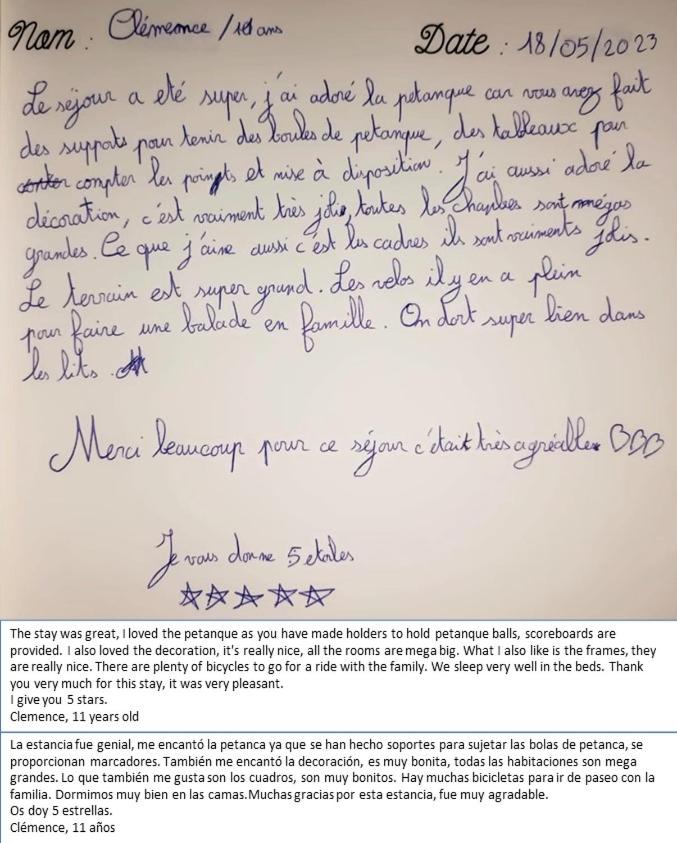 Nom : Clémemce / 11 ans
Date : 18/05/2023
Le séjour a eté super, j'ai adoré la petanque car vous avez fait
des supports pour tenir des boules de petanque, des tableaux pour
compter les poingts et mise à disposition. J'ai aussi adoré la
décoration, c'est vraiment très jolie, toutes les chambes sont mégas
grandes. Ce que j'aime aussi c'est les cadres ils sont vraiments jolis.
Le terrain est super grand. Les velos il y en a plein
pour faire une balade en famille. On dort super bien dans
les lits.
Merci beaucoup pour ce séjour c'était très agréable
Je vous donne 5 etoiles
The stay was great, I loved the petanque as you have made holders to hold petanque balls, scoreboards are
provided. I also loved the decoration, it's really nice, all the rooms are mega big. What I also like is the frames, they
are really nice. There are plenty of bicycles to go for a ride with the family. We sleep very well in the beds. Thank
you very much for this stay, it was very pleasant.
I give you 5 stars.
Clemence, 11 years old
La estancia fue genial, me encantó la petanca ya que se han hecho soportes para sujetar las bolas de petanca, se
proporcionan marcadores. También me encantó la decoración, es muy bonita, todas las habitaciones son mega
grandes. Lo que también me gusta son los cuadros, son muy bonitos. Hay muchas bicicletas para ir de paseo con la
familia. Dormimos muy bien en las camas. Muchas gracias por esta estancia, fue muy agradable.
Os doy 5 estrellas.
Clémence, 11 años